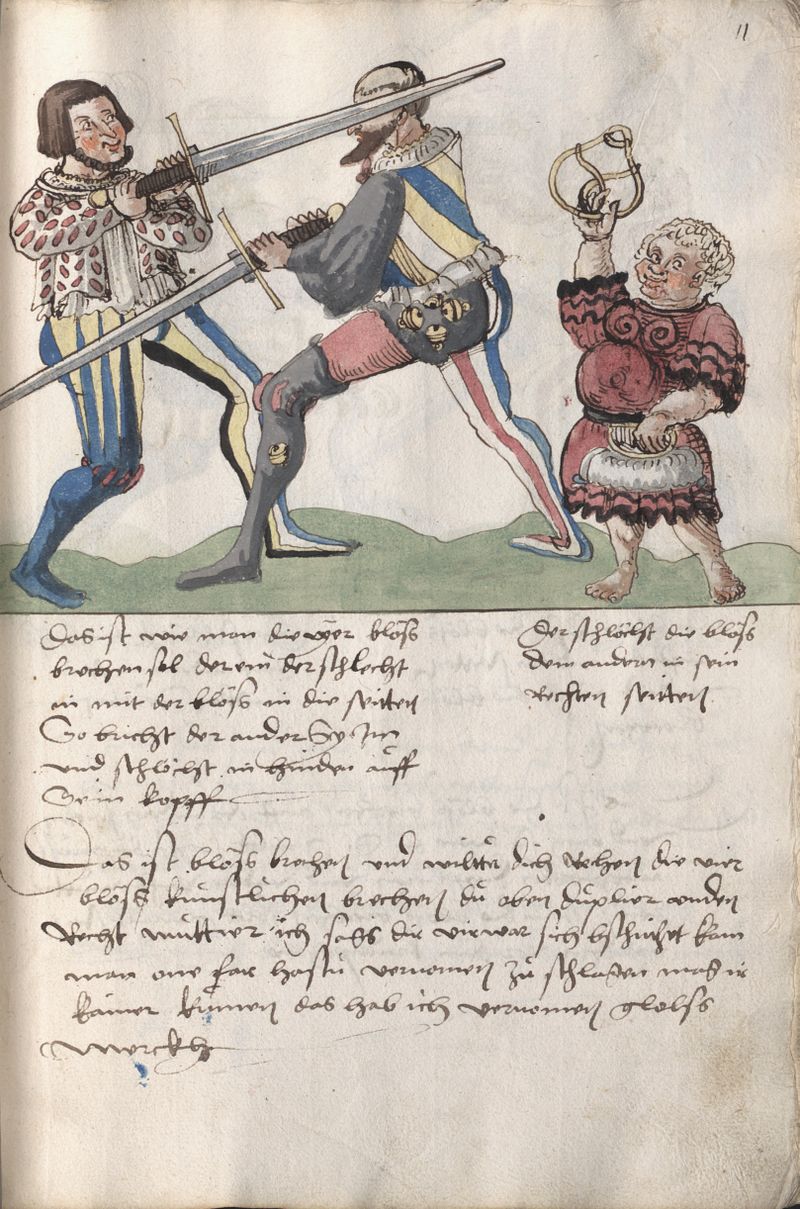 11
Das ist wie man die vyer blöss
brechen sol der ein der schlecht
in mit der blöss in die seitten
So bricht der ander
und schlöchst in hinden auff
Sein kopff
Der schlöchst die blöss
dem andern in sein
Rechten seitten
Das ist blöss brechen und wiltu dich Rechen die vier
blöss künstlichen brechen dü oben düplier unden
Recht müttier ich sags dir vir war sich bschützt kain
man one far hastu vernomen zü schlagen mag
kümen das hab ich vernomen gloss
Merckh